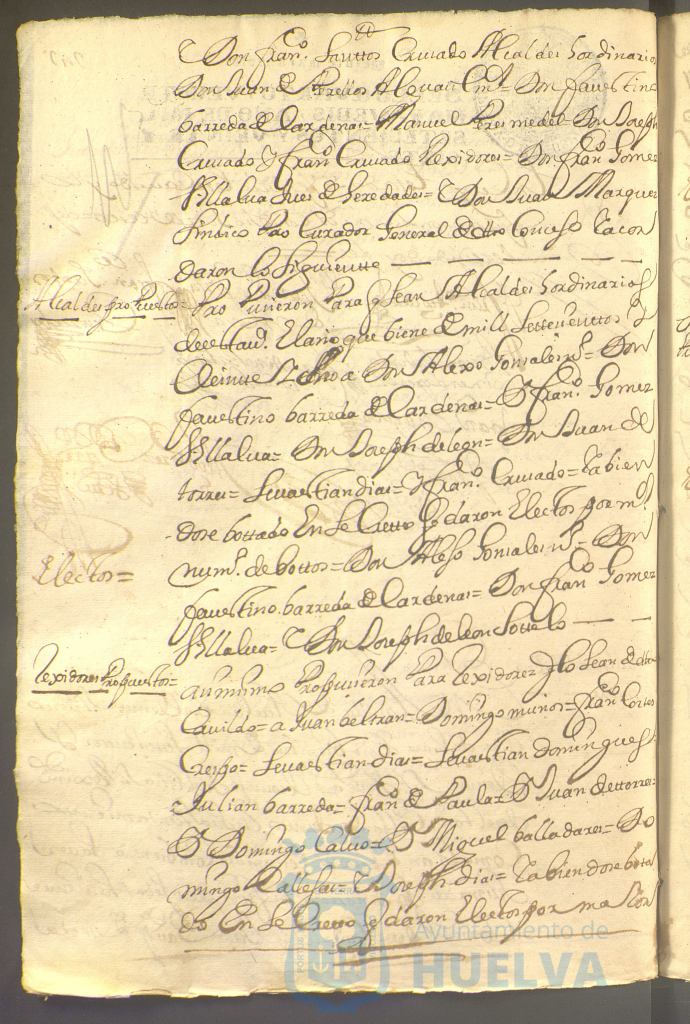 Don fran.co Santtos Cruzado Alcaldes hordinarios
Don Juan de Alguacil m.r = Don faustino
barreda de Cardenas = Manuel = Don Joseph
Cruzado y fran.co Cruzado Rexidores = Don fran.co Gomez
Villalua Jues de heredades = Y Don Juan Marquez
sindico Procurador General de dho Consejo
daron lo siguientte
Alcaldes propuestos =
Pro pusieron Para q sean Alcaldes hordinarios
el año que biene de mill settezienttos y
Veintte Don Alexo Gonsales = Don
faustino barreda de Cardenas = D fran.co Gomez
Villalua = Don Joseph de leon = Don Juan de
torres = Sevastian dias = Y fran.co Cruzado =
dose bottado En Secretto Electos por m.r
num.o de bottos = Don Alexo Gonsales = Don
Electos =
faustino barreda de Cardenas = Don fran.co Gomez
Villalua = Y Don Joseph de leon Sottelo
Rexidores Propuestos =
asimismo Propusieron Para Rexidores q lo sean de dho
Cavildo = a Juan beltran = Domingo muños = fran.co Cortes
Crespo = Sevastian dias = Sevastian domingues
Julian barreda = fran.co de Paula = D Juan de ttorres =
D Domingo Calvo = D Miguel balladares = Do
mingo = Y Joseph dias = botta
do En Secretto Electos por
Ayuntamiento de
HUELVA